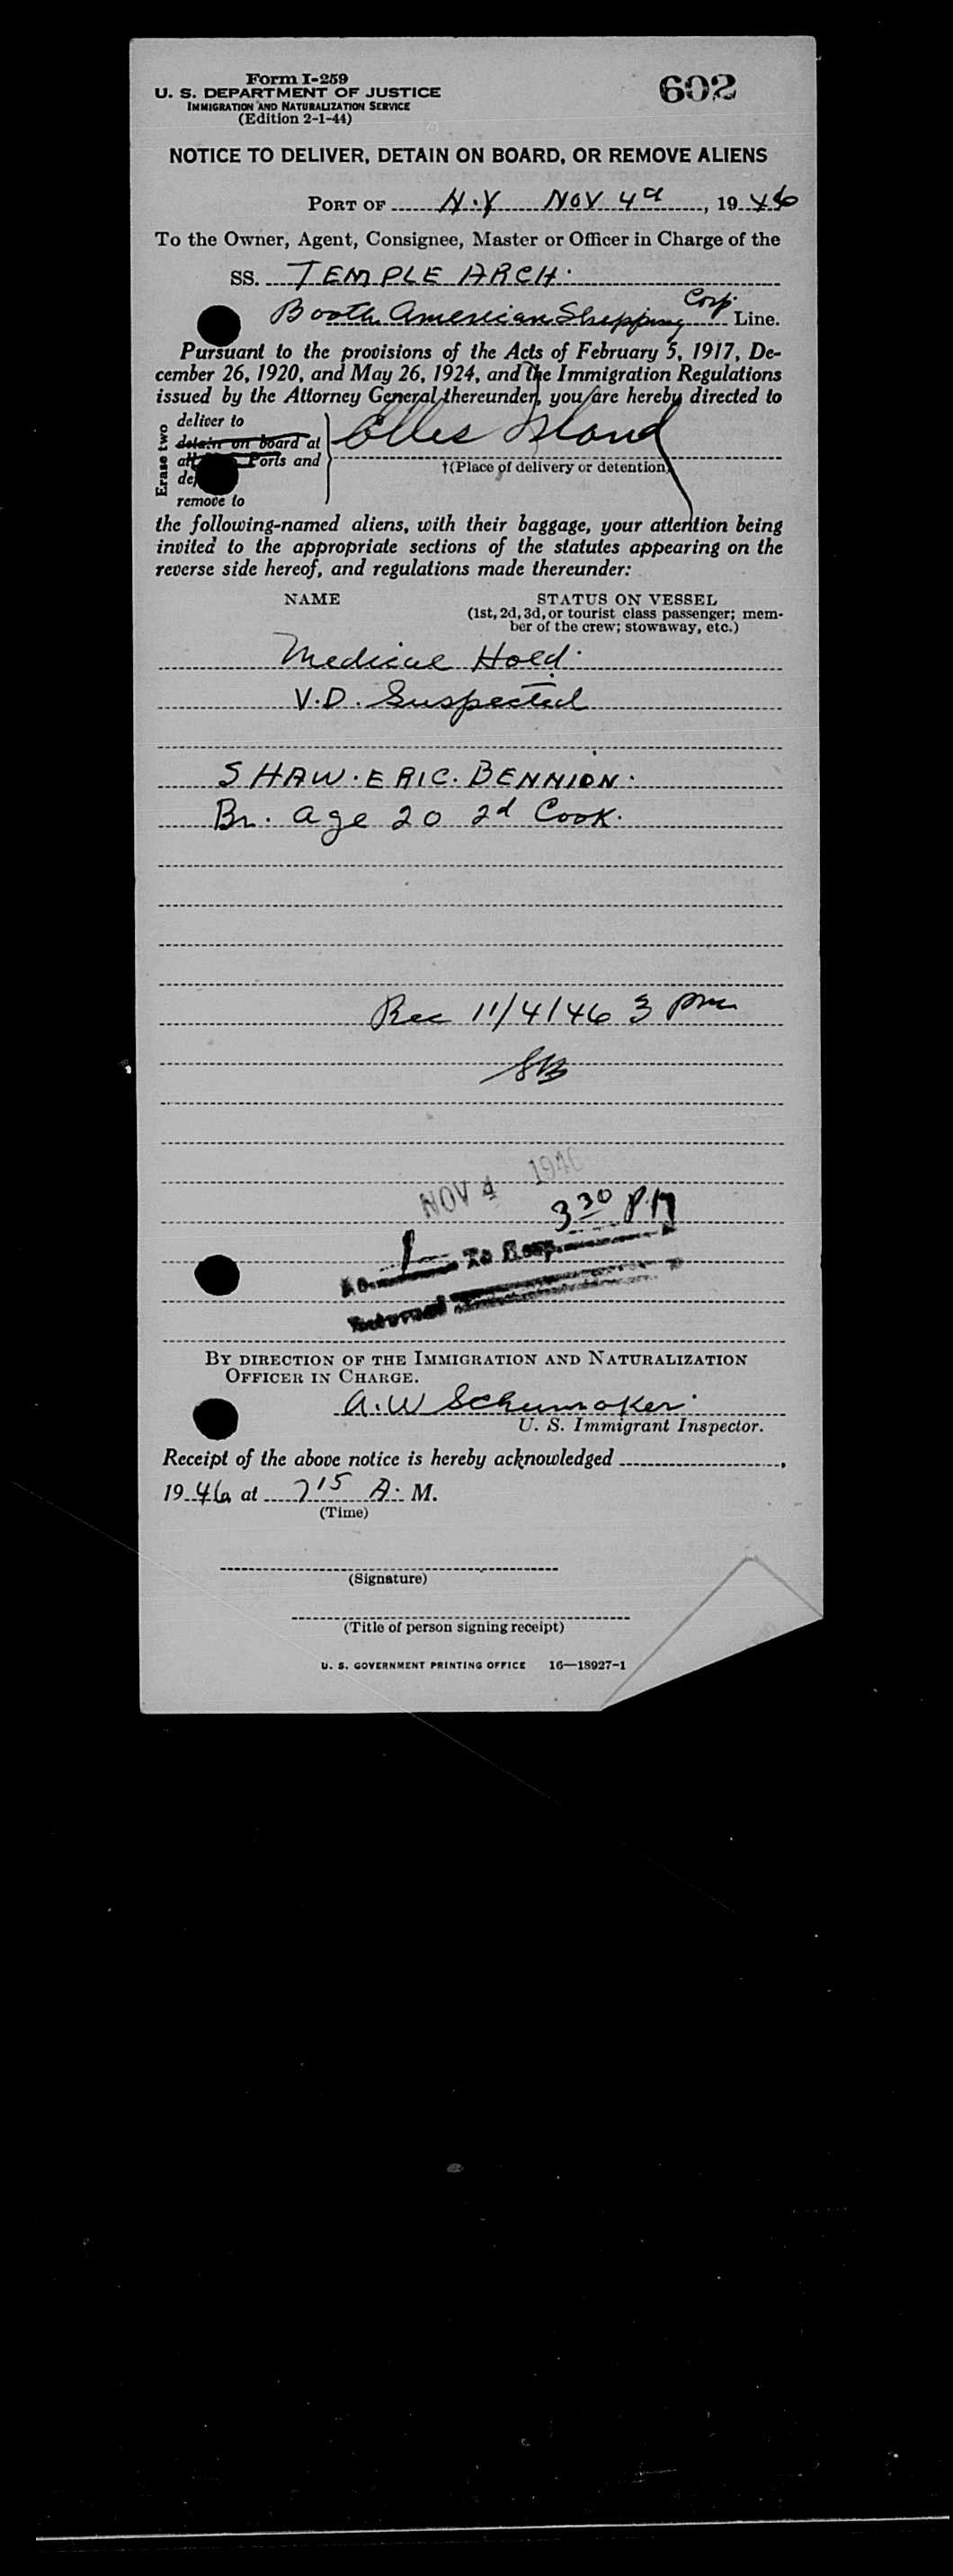 Form I-259
602
U. S. DEPARTMENT OF JUSTICE
IMMIGRATION AND NATURALIZATION SERVICE
(Edition 2-1-44)
NOTICE TO DELIVER, DETAIN ON BOARD, OR REMOVE ALIENS
PORT OF N.Y NOV 4th, 1946
To the Owner, Agent, Consignee, Master or Officer in Charge of the
SS. TEMPLE ARCH.
Booth American Shipping Corp. Line.
Pursuant to the provisions of the Acts of February 5, 1917, De-
cember 26, 1920, and May 26, 1924, and the Immigration Regulations
issued by the Attorney General thereunder, you are hereby directed to
Erase two
deliver to
detain on board at
Ports and
remove to
Ellis Island
†(Place of delivery or detention)
the following-named aliens, with their baggage, your attention being
invited to the appropriate sections of the statutes appearing on the
reverse side hereof, and regulations made thereunder:
NAME STATUS ON VESSEL
(1st, 2d, 3d, or tourist class passenger; mem-
ber of the crew; stowaway, etc.)
Medical Hold.
V.D. Suspected
SHAW. ERIC. BENNION.
Br. age 20 2d Cook.
Rec 11/4/46 3 pm
SB
NOV 4 1946
3 30 P.M
No. 1 To Hosp.
Returned
BY DIRECTION OF THE IMMIGRATION AND NATURALIZATION
OFFICER IN CHARGE.
A.W Schumaker
U. S. Immigrant Inspector.
Receipt of the above notice is hereby acknowledged ,
1946 at 7 15 A. M.
(Time)
(Signature)
(Title of person signing receipt)
U. S. GOVERNMENT PRINTING OFFICE 16—18927-1